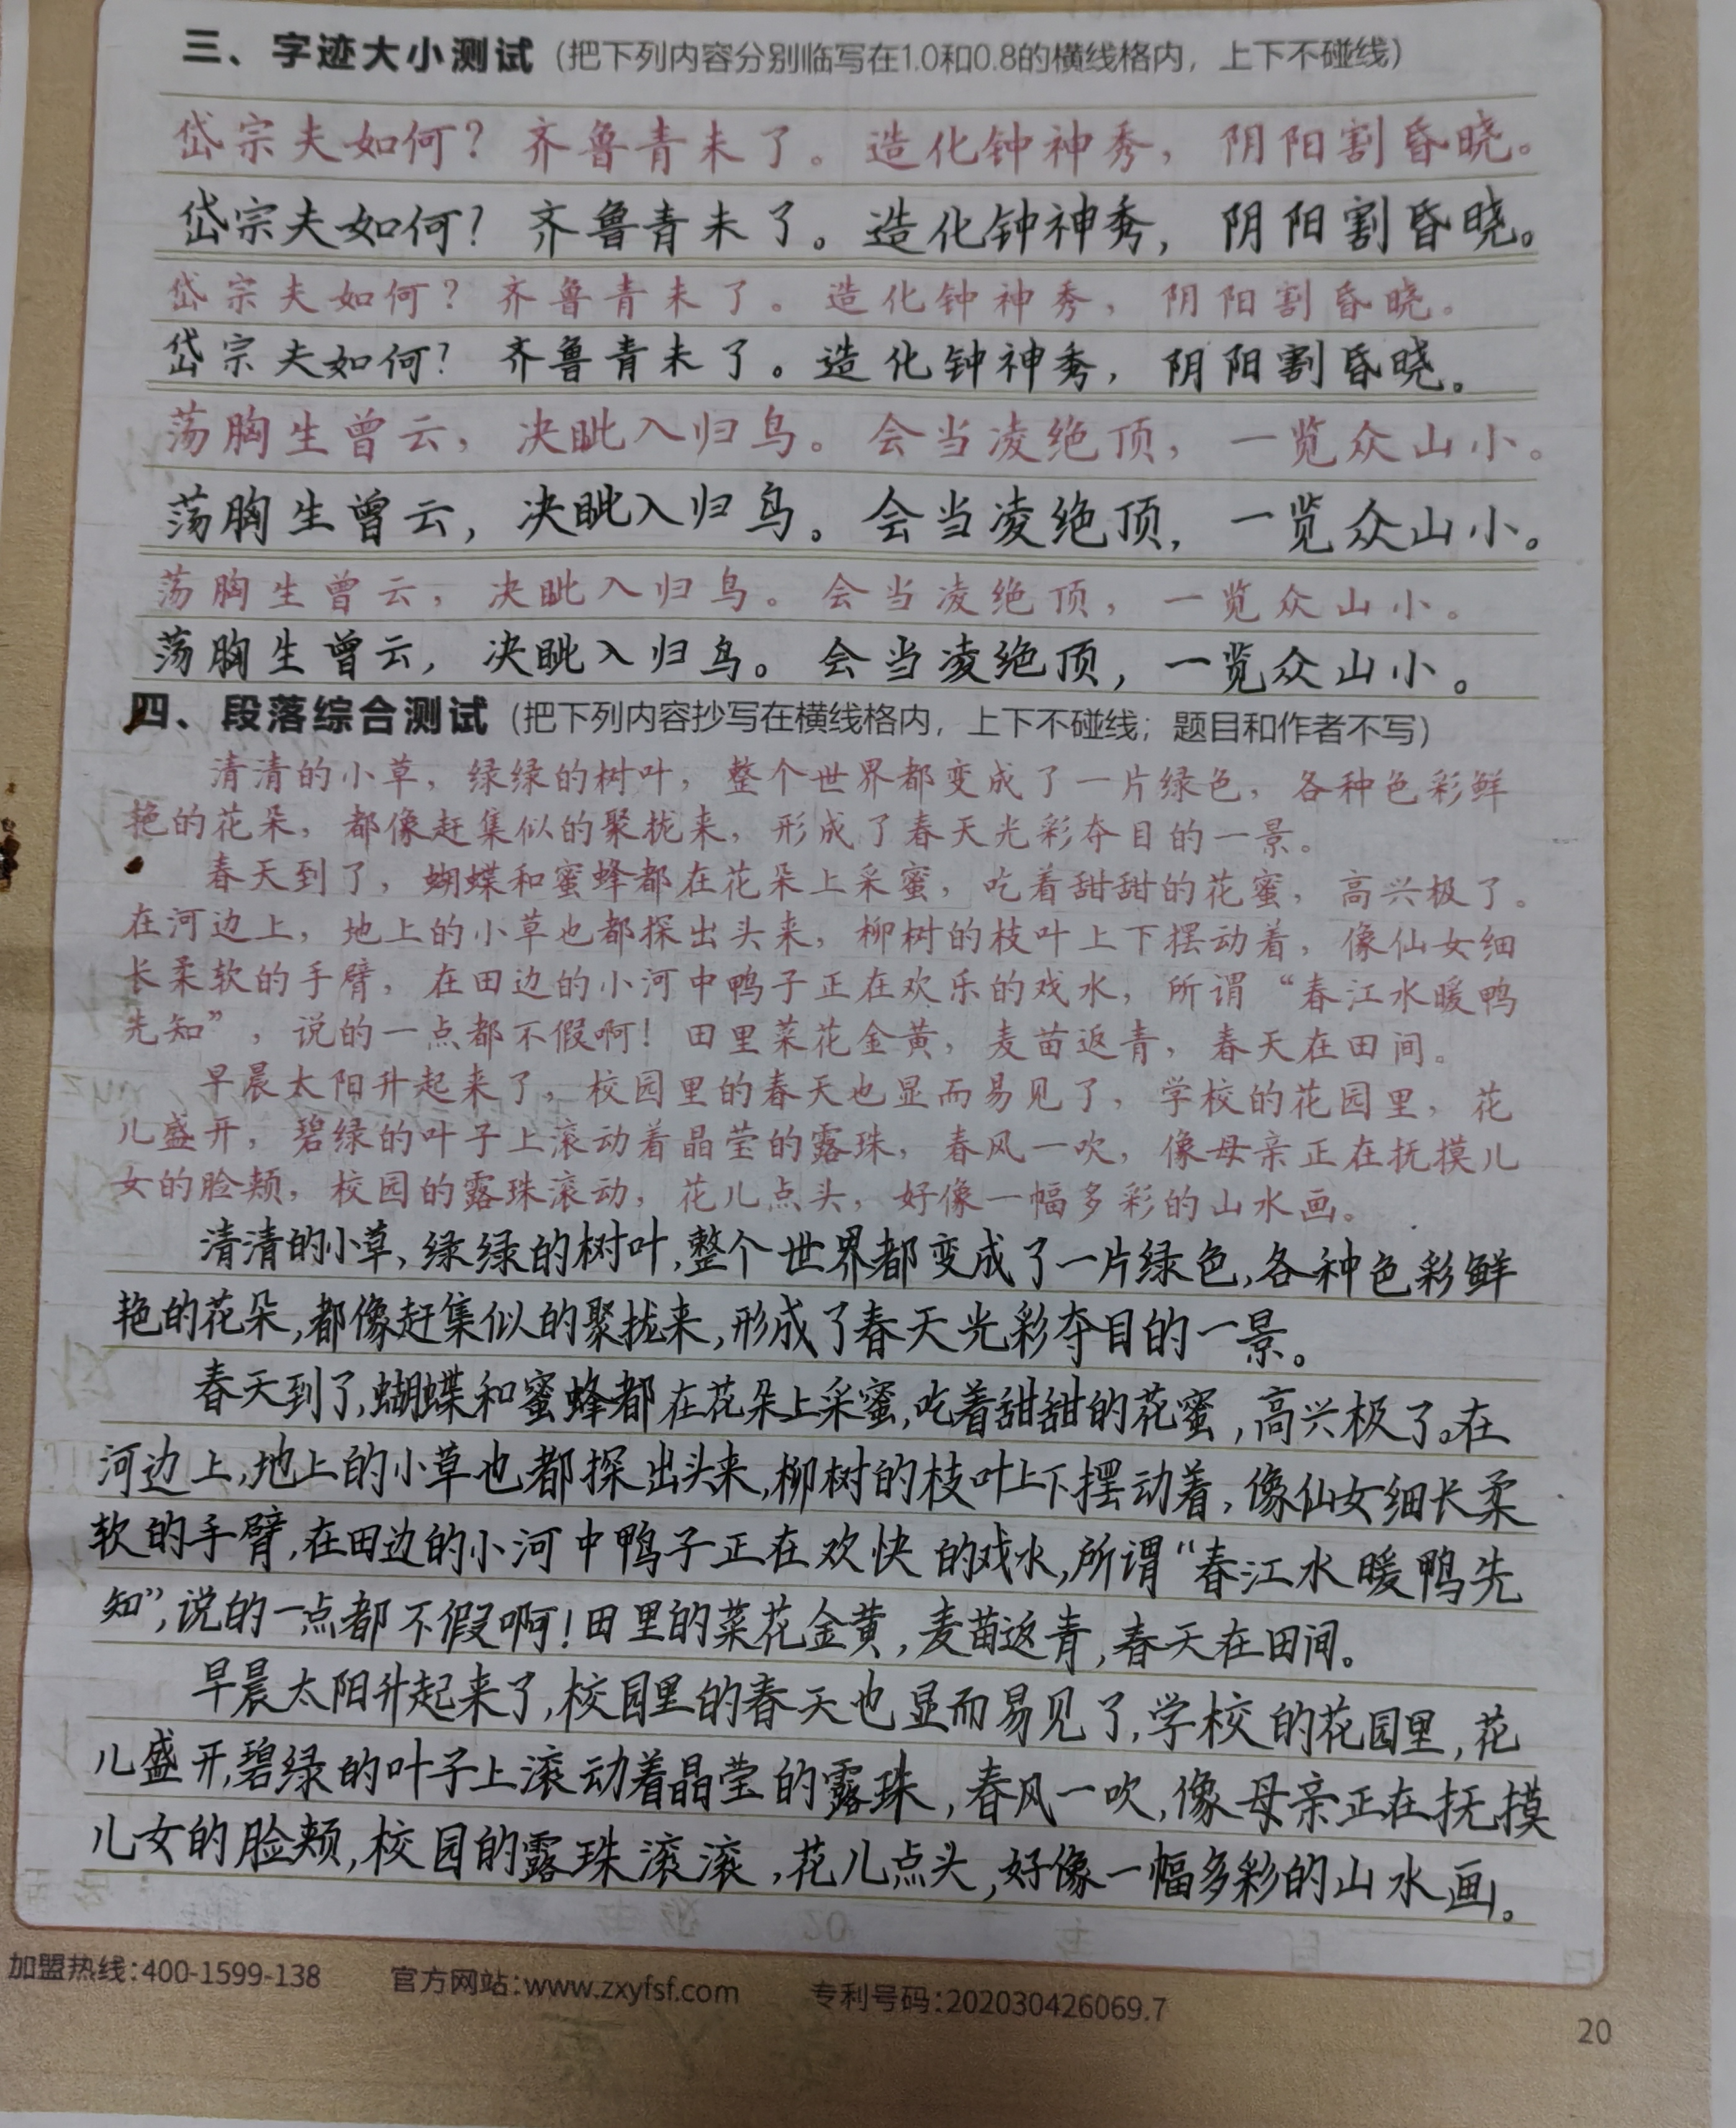 三、字迹大小测试（把下列内容分别临写在1.0和0.8的横线格内，上下不碰线）
岱宗夫如何？齐鲁青未了。造化钟神秀，阴阳割昏晓。
岱宗夫如何？齐鲁青未了。造化钟神秀，阴阳割昏晓。
岱宗夫如何？齐鲁青未了。造化钟神秀，阴阳割昏晓。
岱宗夫如何？齐鲁青未了。造化钟神秀，阴阳割昏晓。
荡胸生曾云，决眦入归鸟。会当凌绝顶，一览众山小。
荡胸生曾云，决眦入归鸟。会当凌绝顶，一览众山小。
荡胸生曾云，决眦入归鸟。会当凌绝顶，一览众山小。
荡胸生曾云，决眦入归鸟。会当凌绝顶，一览众山小。
四、段落综合测试（把下列内容抄写在横线格内，上下不碰线；题目和作者不写）
清清的小草，绿绿的树叶，整个世界都变成了一片绿色，各种色彩鲜
艳的花朵，都像赶集似的聚拢来，形成了春天光彩夺目的一景。
春天到了，蝴蝶和蜜蜂都在花朵上采蜜，吃着甜甜的花蜜，高兴极了。
在河边上，地上的小草也都探出头来，柳树的枝叶上下摆动着，像仙女细
长柔软的手臂，在田边的小河中鸭子正在欢乐的戏水，所谓“春江水暖鸭
先知”，说的一点都不假啊！田里菜花金黄，麦苗返青，春天在田间。
早晨太阳升起来了，校园里的春天也显而易见了，学校的花园里，花
儿盛开，碧绿的叶子上滚动着晶莹的露珠，春风一吹，像母亲正在抚摸儿
女的脸颊，校园的露珠滚动，花儿点头，好像一幅多彩的山水画。
清清的小草，绿绿的树叶，整个世界都变成了一片绿色，各种色彩鲜
艳的花朵，都像赶集似的聚拢来，形成了春天光彩夺目的一景。
春天到了，蝴蝶和蜜蜂都在花朵上采蜜，吃着甜甜的花蜜，高兴极了。在
河边上，地上的小草也都探出头来，柳树的枝叶上下摆动着，像仙女细长柔
软的手臂，在田边的小河中鸭子正在欢快的戏水，所谓“春江水暖鸭先
知”，说的一点都不假啊！田里的菜花金黄，麦苗返青，春天在田间。
早晨太阳升起来了，校园里的春天也显而易见了，学校的花园里，花
儿盛开，碧绿的叶子上滚动着晶莹的露珠，春风一吹，像母亲正在抚摸
儿女的脸颊，校园的露珠滚滚，花儿点头，好像一幅多彩的山水画。
加盟热线：400-1599-138 官方网站：www.zxyfsf.com 专利号码：202030426069.7
20